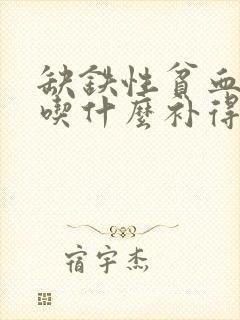 缺铁性贫血
喫什麼补得
宿宇杰